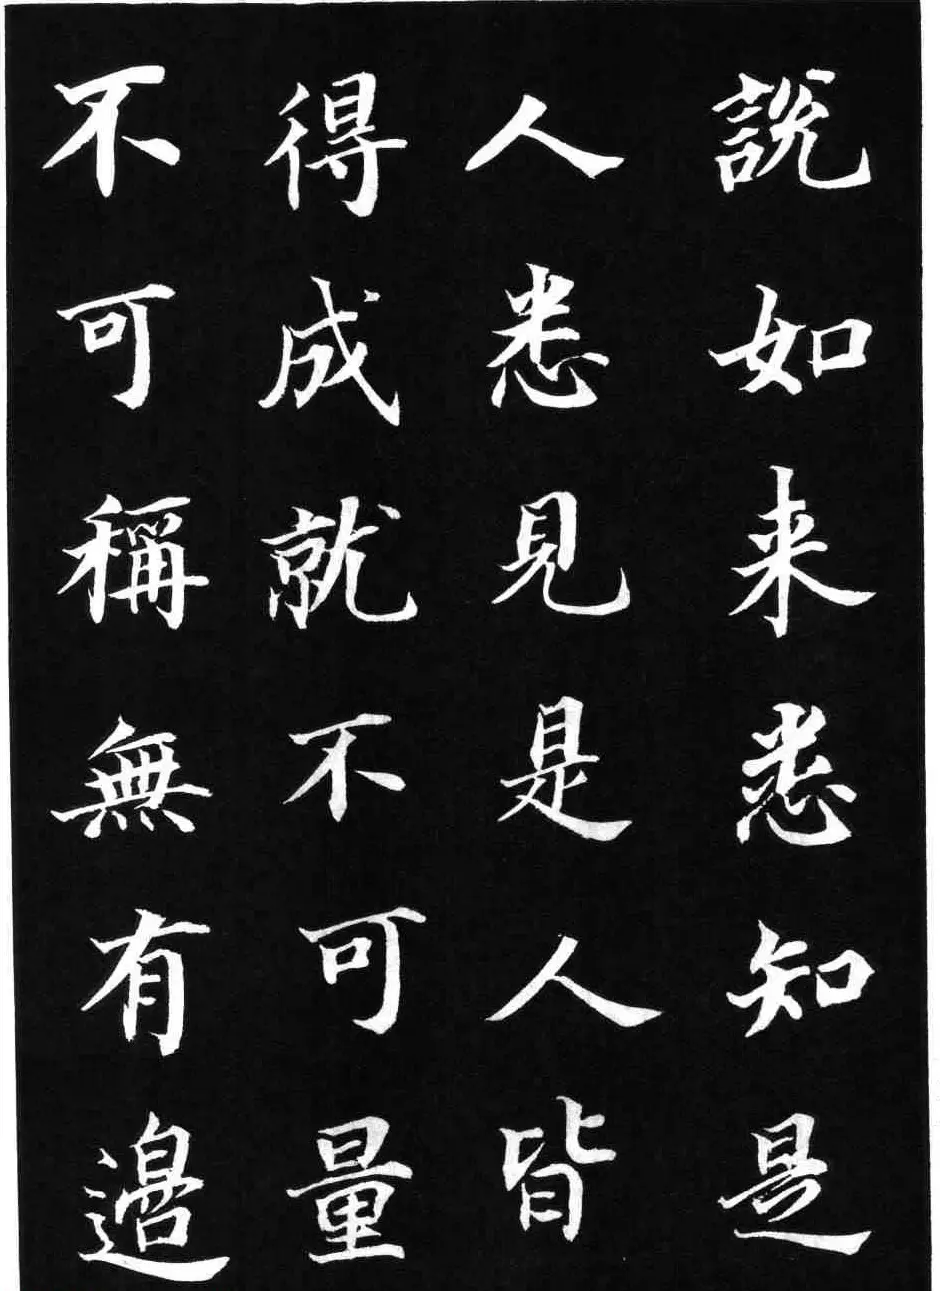 說如来悉知是
人悉見是人皆
得成就不可量
不可稱無有邊